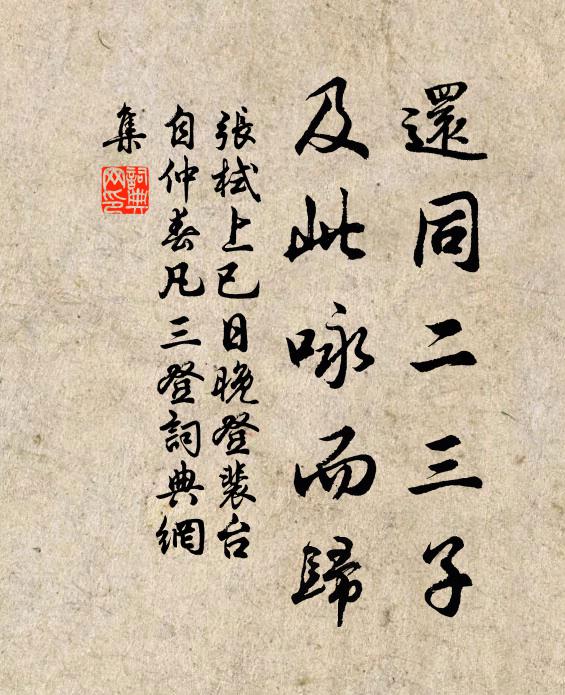 還同二三子
及此咏而歸
張栻上巳日晚登裴台
自仲春凡三登詞典網
集
詞典
网印